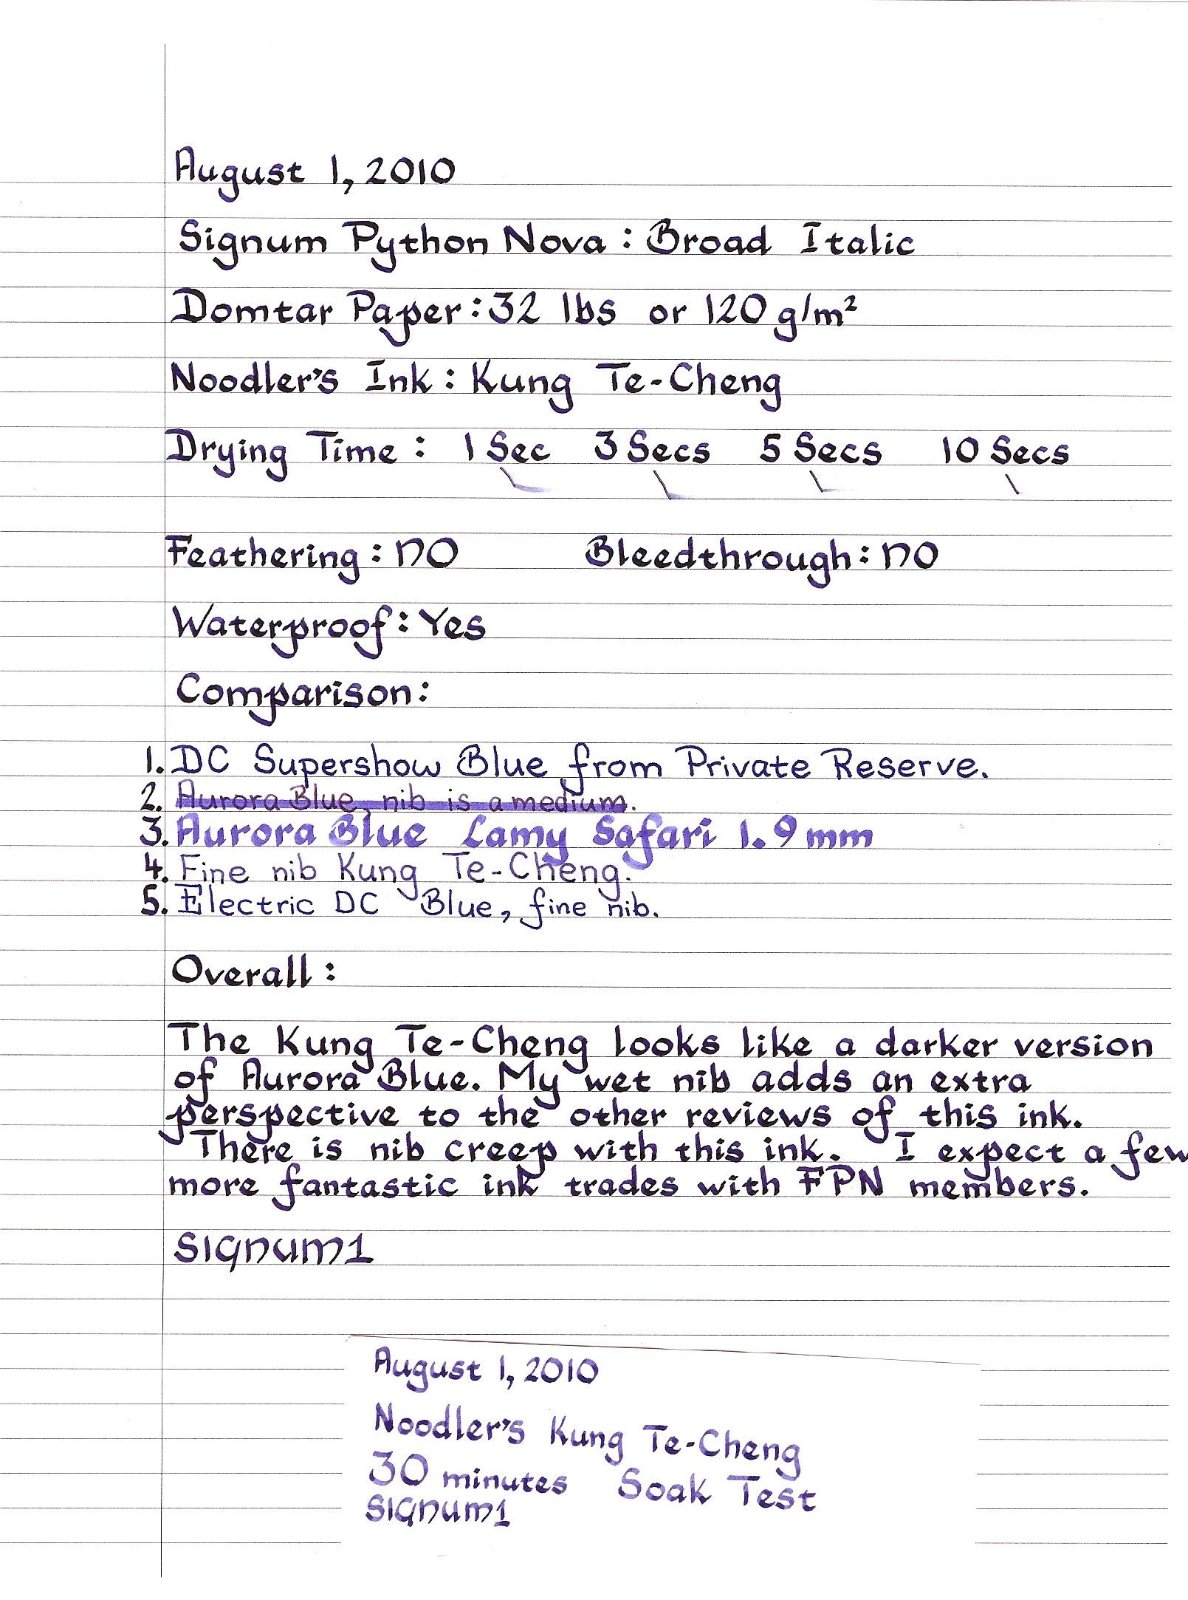 August 1, 2010
Signum Python Nova : Broad Italic
Domtar Paper : 32 lbs or 120 g/m²
Noodler's Ink : Kung Te-Cheng
Drying Time : 1 Sec 3 Secs 5 Secs 10 Secs
Feathering : no Bleedthrough : no
Waterproof : Yes
Comparison :
1. DC Supershow Blue from Private Reserve.
2. Aurora Blue, nib is a medium.
3. Aurora Blue Lamy Safari 1.9 mm
4. Fine nib Kung Te-Cheng.
5. Electric DC Blue, fine nib.
Overall :
The Kung Te-Cheng looks like a darker version
of Aurora Blue. My wet nib adds an extra
perspective to the other reviews of this ink.
There is nib creep with this ink. I expect a few
more fantastic ink trades with FPN members.
Signum1
August 1, 2010
Noodler's Kung Te-Cheng
30 minutes Soak Test
Signum1